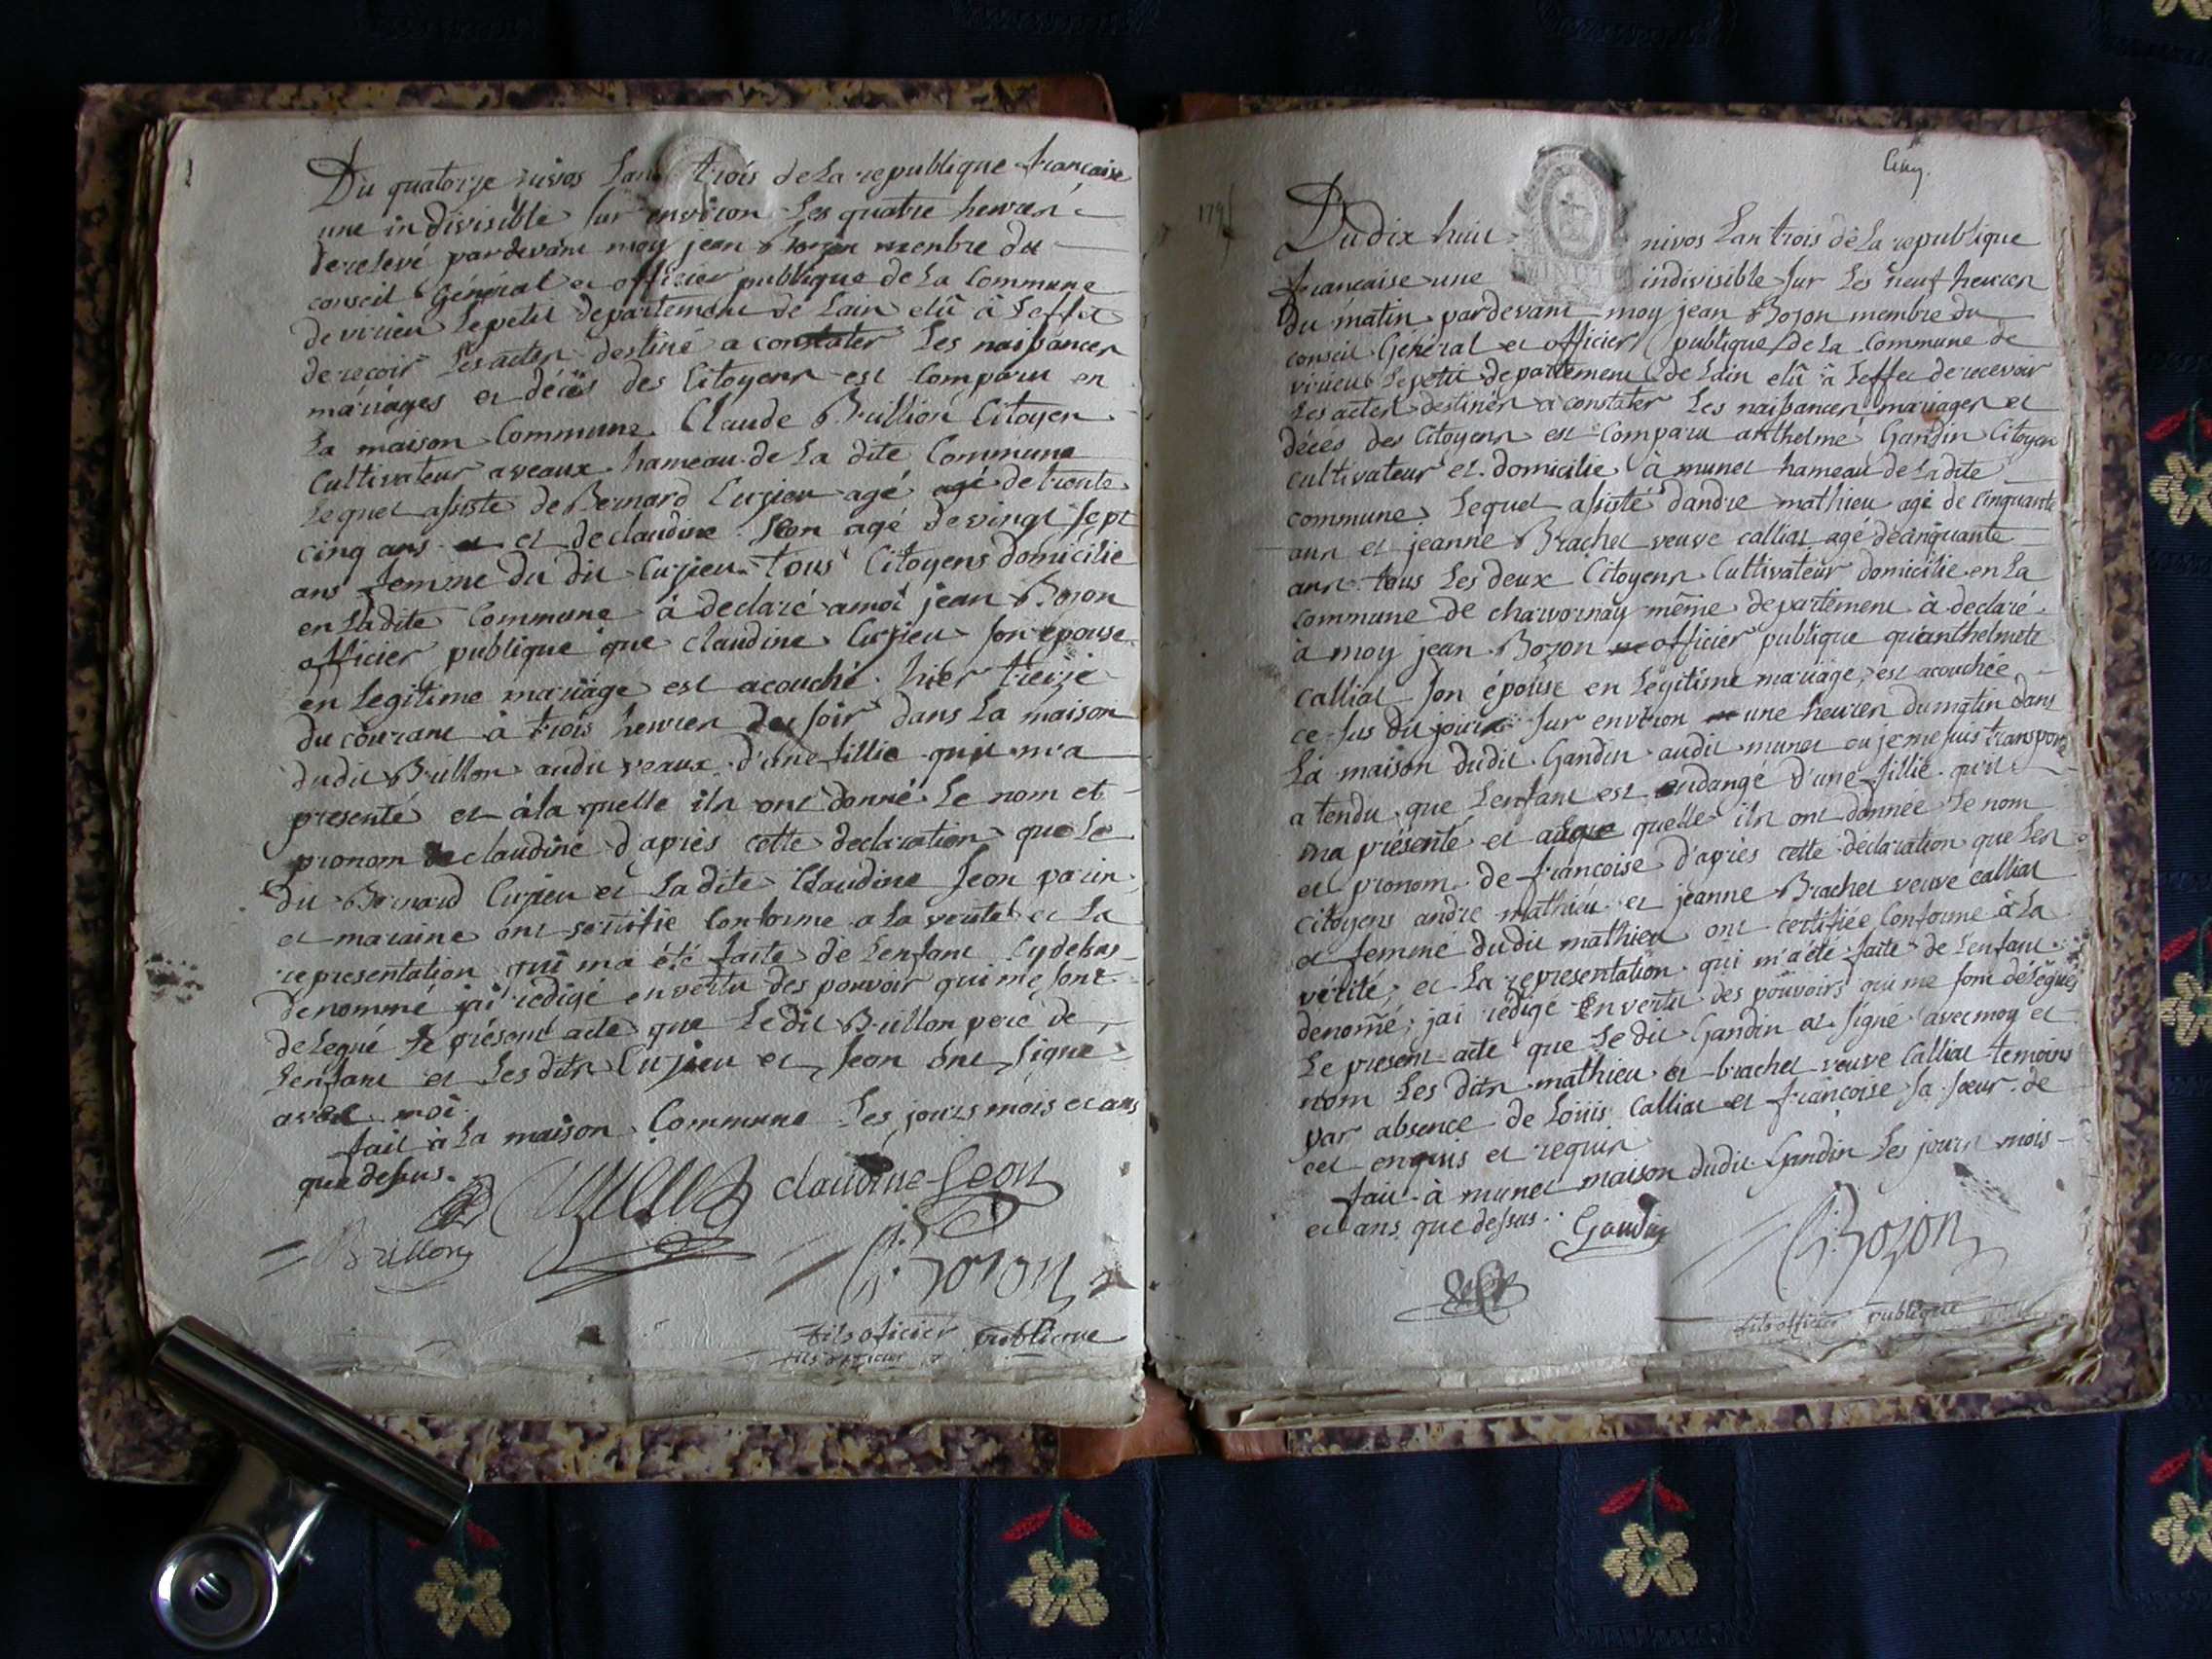 Du quatorze nivos Lan trois de La republique française
une indivisible sur environ Les quatre heures
de relevé pardevant moy jean Bozon menbre du
conseil Général et officier publique de La Commune
de virieu Lepetit departement de Lain elû à Leffet
de reçoir Les actes destiné a constater Les naissances
mariages et décès des Citoyens est Comparu en
La maison Commune Claude Brillion Citoyen
Cultivateur a veaux hameau de La dite Commune
Lequel assisté de Bernard Cuzieu agé agé de trente
cinq ans et et de claudine Seon agé de vingt sept
ans femme du dit Cuzieu tous Citoyens domicilie
en Ladite Commune à declaré a moi jean Bozon
officier publique que claudine Cuzieu son épouse
en Legitime mariage est acouché hier treize
du courant à trois heures du soir dans La maison
dudit Brillon audit veaux d'une fillie qu'il m'a
presenté et à la quelle ils ont donné Le nom et
pronom de claudine d'après cette declaration que Le
dit Bernard Cuzieu et Ladite Claudine Seon parin
et maraine ont sertifie Conforme a La verité et La
representation qui ma été faite de Lenfant Cydebas
denommé jai rédigé en vertu des pouvoir qui me sont
delegué Le présent acte que Ledit Brillon pere de
Lenfant et Lesdits Cuzieu et Seon ont signe
avec moi
fait à La maison Commune Les jours mois et ans
que dessus.
claudine Seon
Brillon
Bozon
fils oficier publique
Cinq
179
Du dix huit nivos Lan trois de La republique
française une indivisible sur Les neuf heures
du matin pardevant moy jean Bozon membre du
conseil Général et officier publique de La Commune de
virieu Lepetit departement de Lain elû à Leffet de recevoir
Les actes destinés a constater Les naissances mariages et
décès des Citoyens est Comparu anthelme Gandin Citoyen
cultivateur et domicilie à munet hameau de Ladite
commune Lequel assisté dandre mathieu agé de Cinquante
ans et jeanne Brachet veuve calliat agé de cinquante
ans tous Les deux Citoyens Cultivateur domicilie en La
commune de charvornay même departement à declaré
à moy jean Bozon officier publique qu'anthelmete
calliat son épouse en Légitime mariage est acouchée
ce jus du jour sur environ une heures du matin dans
La maison dudit Gandin audit munet ou je me suis transporté
a tendu que Lenfant est endangé d'une fillie qu'il
ma présenté et a La quelle ils ont donnée Le nom
et pronom de françoise d'après cette déclaration que Les
Citoyens andre mathieu et jeanne Brachet veuve calliat
et femme dudit mathieu ont certifiée Conforme à La
vérité, et La representation qui m'a été faite de Lenfant
denommé, jai rédigé En vertu des pouvoirs qui me sont délégués
Le present acte que Le dit Gandin at signé avec moy et
nom Les dits mathieu et brachet veuve Calliat temoins
par absence de Loüis Calliat et françoise sa sœur de
cet enquis et requis
fait à munet maison dudit Gandin Les jours mois
et ans que dessus.
Gandin
Bozon
fils officier publique